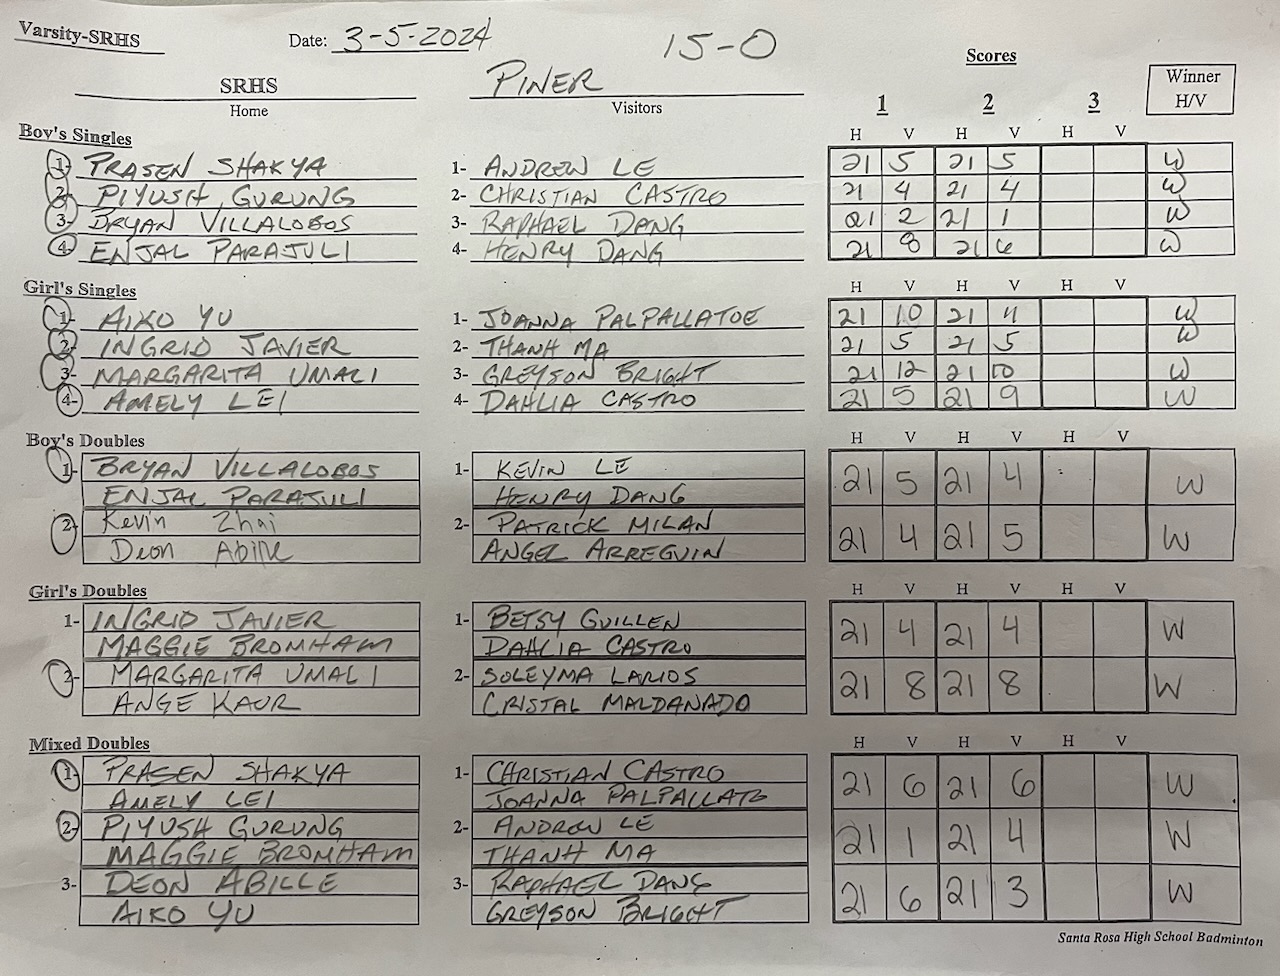 Varsity-SRHS Date: 3-5-2024 15-0
Scores
SRHS PINER Winner
Home Visitors 1 2 3 H/V
Boy's Singles H V H V H V
1- PRASEN SHAKYA 1- ANDREW LE 21 5 21 5 W
2- PIYUSH GURUNG 2- CHRISTIAN CASTRO 21 4 21 4 W
3- BRYAN VILLALOBOS 3- RAPHAEL DANG 21 2 21 1 W
4- ENJAL PARAJULI 4- HENRY DANG 21 8 21 6 W
Girl's Singles H V H V H V
1- AIKO YU 1- JOANNA PALPALLATOE 21 10 21 4 W
2- INGRID JAVIER 2- THANH MA 21 5 21 5 W
3- MARGARITA UMALI 3- GREYSON BRIGHT 21 12 21 10 W
4- AMELY LEI 4- DAHLIA CASTRO 21 5 21 9 W
Boy's Doubles H V H V H V
1- BRYAN VILLALOBOS 1- KEVIN LE 21 5 21 4 W
ENJAL PARAJULI HENRY DANG
2- Kevin Zhai 2- PATRICK MILAN 21 4 21 5 W
Deon Abille ANGEL ARREGUIN
Girl's Doubles H V H V H V
1- INGRID JAVIER 1- BETSY GUILLEN 21 4 21 4 W
MAGGIE BROMHAM DAHLIA CASTRO
2- MARGARITA UMALI 2- SOLEYMA LARIOS 21 8 21 8 W
ANGE KAUR CRISTAL MALDANADO
Mixed Doubles H V H V H V
1- PRASEN SHAKYA 1- CHRISTIAN CASTRO 21 6 21 6 W
AMELY LEI JOANNA PALPALLATO
2- PIYUSH GURUNG 2- ANDREW LE 21 1 21 4 W
MAGGIE BROMHAM THANH MA
3- DEON ABILLE 3- RAPHAEL DANG 21 6 21 3 W
AIKO YU GREYSON BRIGHT
Santa Rosa High School Badminton